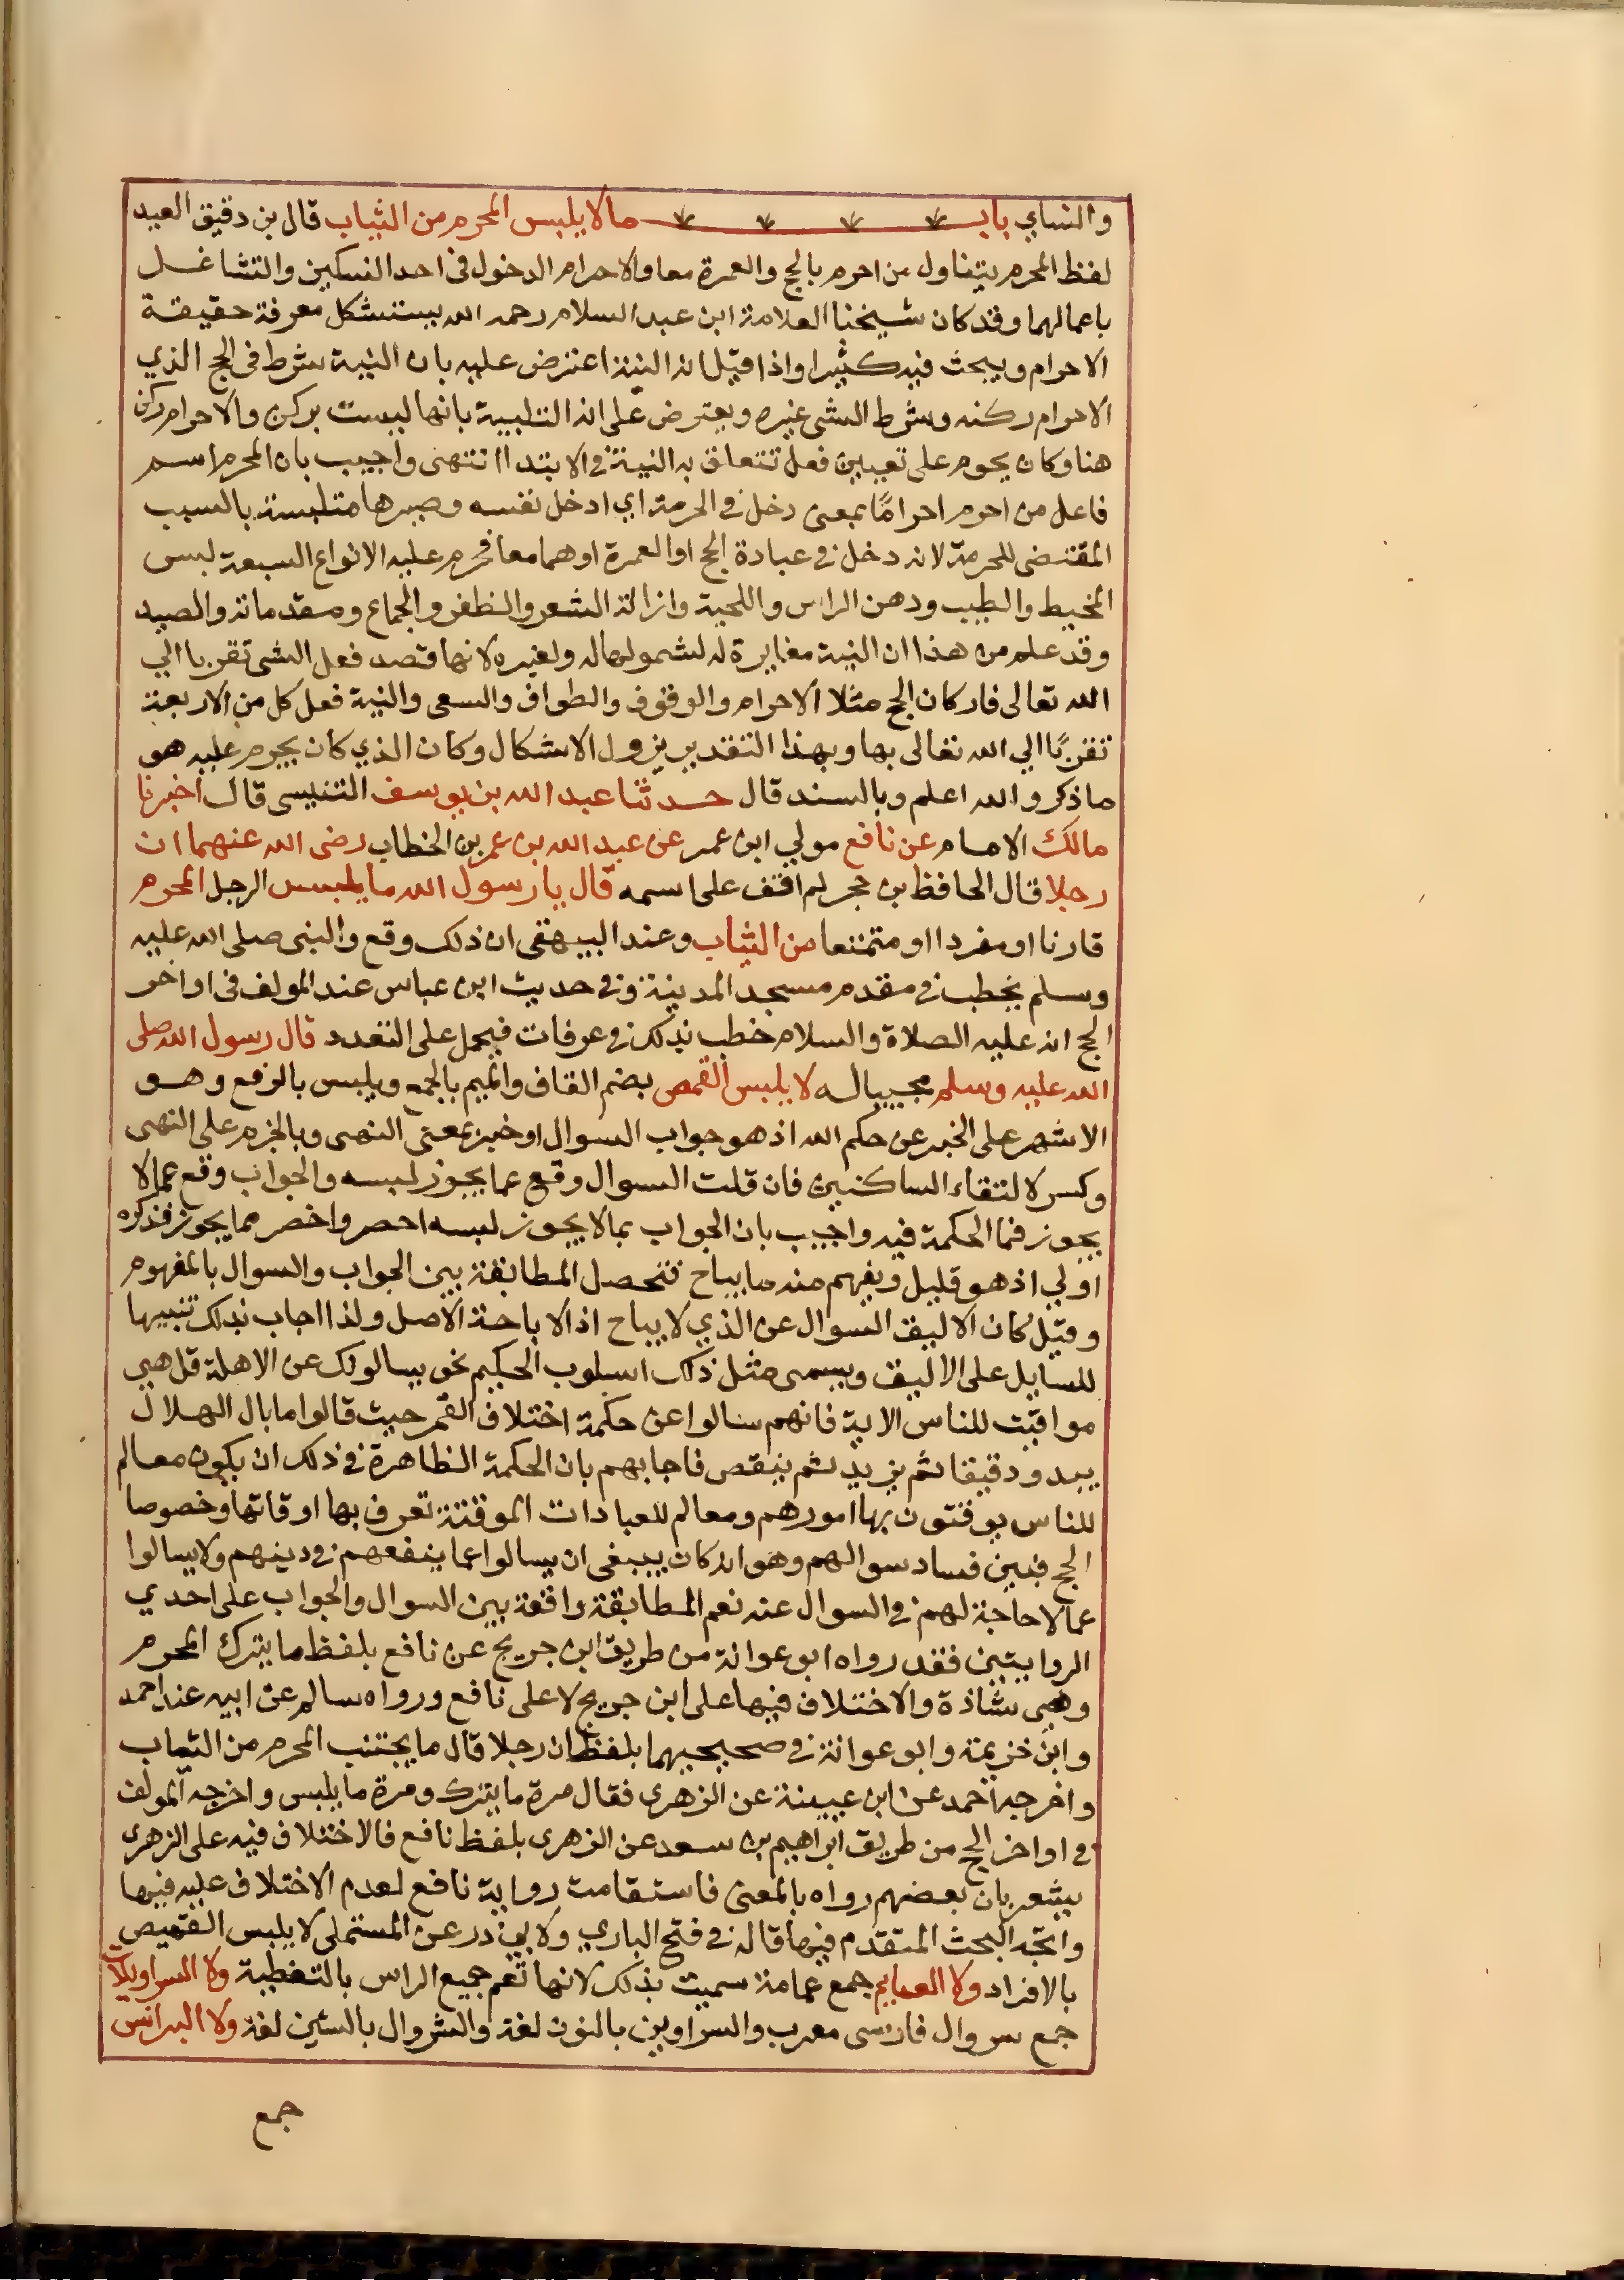 والنساي باب ما لا يلبس المحرم من الثياب قال بن دقيق العيد
لفظ المحرم يتناول من احرم بالحج والعمرة معا والاحرام الدخول في احد النسكين والتشاغل
باعمالهما وقد كان شيخنا العلامة ابن عبد السلام رحمه الله يستشكل معرفة حقيقة
الاحرام ويبحث فيه كثيرا واذا قيل انه النية اعترض عليه بان النية شرط في الحج الذي
الاحرام ركنه وشرط الشي غيره ويعترض على انه التلبية بانها ليست بركن والاحرام ركن
هنا وكان يحوم على تعيين فعل تتعلق به النية في الابتدا انتهى واجيب بان المحرم اسم
فاعل من احرم احراما بمعنى دخل في الحرمة اي ادخل نفسه وصيرها متلبسة بالسبب
المقتضى للحرمة لانه دخل في عبادة الحج او العمرة او هما معا فحرم عليه الانواع السبعة لبس
المخيط والطيب ودهن الراس واللحية وازالة الشعر والظفر والجماع ومقدماته والصيد
وقد علم من هذا ان النية مغايرة له لشمولها له ولغيره لانها قصد فعل الشى تقربا الي
الله تعالى فاركان الحج مثلا الاحرام والوقوف والطواف والسعى والنية فعل كل من الاربعة
تقربًا الي الله تعالى بها وبهذا التقدير يزول الاشكال وكان الذي كان يحوم عليه هو
ما ذكر والله اعلم وبالسند قال حدثنا عبد الله بن يوسف التنيسى قال اخبرنا
مالك الامام عن نافع مولي ابن عمر عن عبد الله بن عمر بن الخطاب رضى الله عنهما ان
رجلا قال الحافظ بن حجر لم اقف على اسمه قال يا رسول الله ما يلبس الرجل المحرم
قارنا او مفردا او متمتعا من الثياب وعند البيهقى ان ذلك وقع والنبى صلى الله عليه
وسلم يخطب في مقدم مسجد المدينة وفي حديث ابن عباس عند المولف في اواخر
الحج انه عليه الصلاة والسلام خطب بذلك في عرفات فيحمل على التعدد قال رسول الله صلى
الله عليه وسلم مجيبا له لا يلبس القمص بضم القاف والميم بالجمع ويلبس بالرفع وهو
الاشهر على الخبر عن حكم الله اذ هو جواب السوال او خبر بمعنى النهى وبالجزم على النهى
وكسر لالتقاء الساكنين فان قلت السوال وقع عما يجوز لبسه والجواب وقع عما لا
يجوز فما الحكمة فيه واجيب بان الجواب بما لا يجوز لبسه احصر واخصر مما يجوز فذكره
اولي اذ هو قليل ويفهم منه ما يباح فتحصل المطابقة بين الجواب والسوال بالمفهوم
وقيل كان الاليق السوال عن الذي لا يباح اذ الاباحة الاصل ولذا اجاب بذلك تنبيها
للسايل على الاليق ويسمى مثل ذلك اسلوب الحكيم نحو يسالونك عن الاهلة قل هي
مواقيت للناس الاية فانهم سالوا عن حكمة اختلاف القمر حيث قالوا ما بال الهلال
يبدو دقيقا ثم يزيد ثم ينقص فاجابهم بان الحكمة الظاهرة في ذلك ان يكون معالم
للناس يوقتون بها امورهم ومعالم للعبادات الموقتة تعرف بها اوقاتها وخصوصا
الحج فبين فساد سوالهم وهو انه كان ينبغى ان يسالوا عما ينفعهم في دينهم ولا يسالوا
عما لا حاجة لهم في السوال عنه نعم المطابقة واقعة بين السوال والجواب على احدي
الروايتين فقد رواه ابو عوانة من طريق ابن جريج عن نافع بلفظ ما يترك المحرم
وهي شاذة والاختلاف فيها على ابن جريج لا على نافع ورواه سالم عن ابيه عند احمد
وابن خزيمة وابو عوانة في صحيحيهما بلفظ ان رجلا قال ما يجتنب المحرم من الثياب
واخرجه احمد عن ابن عيينة عن الزهرى فقال مرة ما يترك ومرة ما يلبس واخرجه المولف
في اواخر الحج من طريق ابراهيم بن سعد عن الزهرى بلفظ نافع فالاختلاف فيه على الزهرى
يشعر بان بعضهم رواه بالمعنى فاستقامت رواية نافع لعدم الاختلاف عليه فيها
واتجه البحث المتقدم فيها قاله في فتح الباري ولابي ذر عن المستملى لا يلبس القميص
بالافراد ولا العمايم جمع عمامة سميت بذلك لانها تعم جميع الراس بالتغطية ولا السراويلات
جمع سروال فارسى معرب والسراوين بالنون لغة والشروال بالشين لغة ولا البرانس
جمع